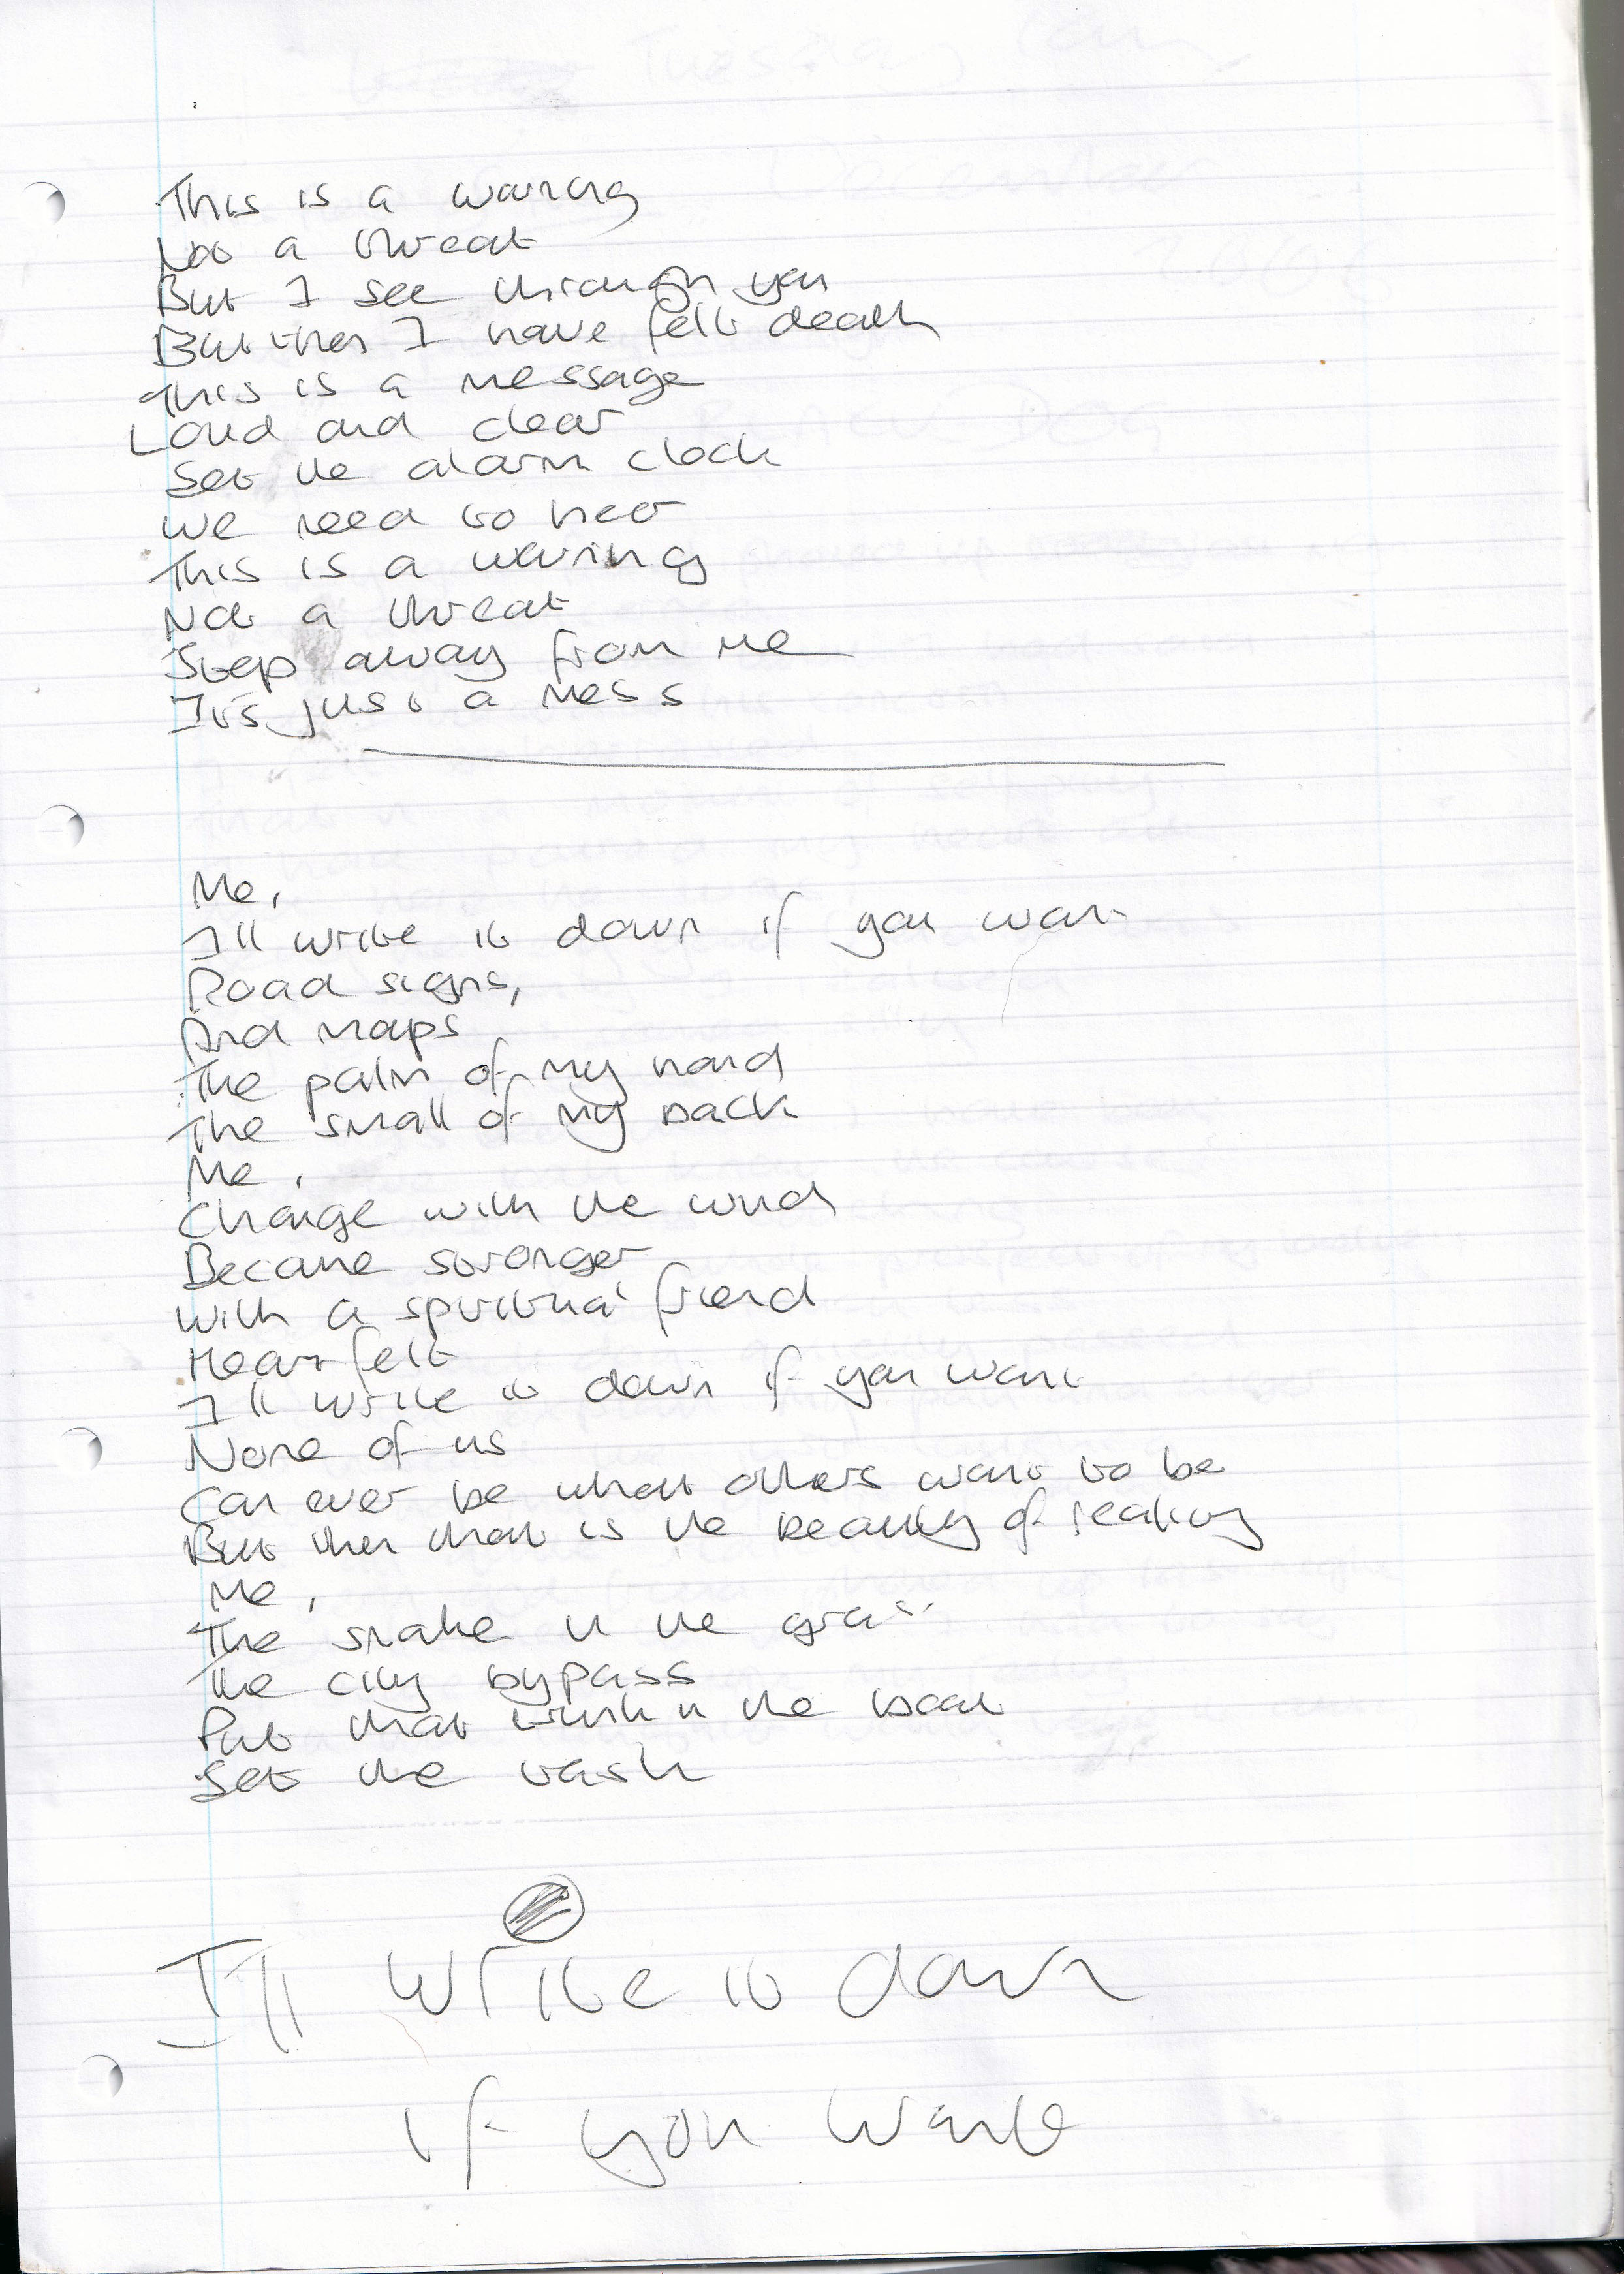 This is a waring
Not a threat
But I see through you
But then I have felt death
This is a message
Loud and clear
Set the alarm clock
We need to hear
This is a waring
Not a threat
Step away from me
It's just a mess
Me,
I'll write it down if you want
Road signs,
And maps
The palm of my hand
The small of my back
Me,
Change with the wind
Became stronger
With a friend
Heart felt
I'll write it down if you want
None of us
Can ever be what others want to be
But then that is the beauty of
Me,
The snake in the grass
The city bypass
Put that in the boat
Set the
I'll write it down
if you want